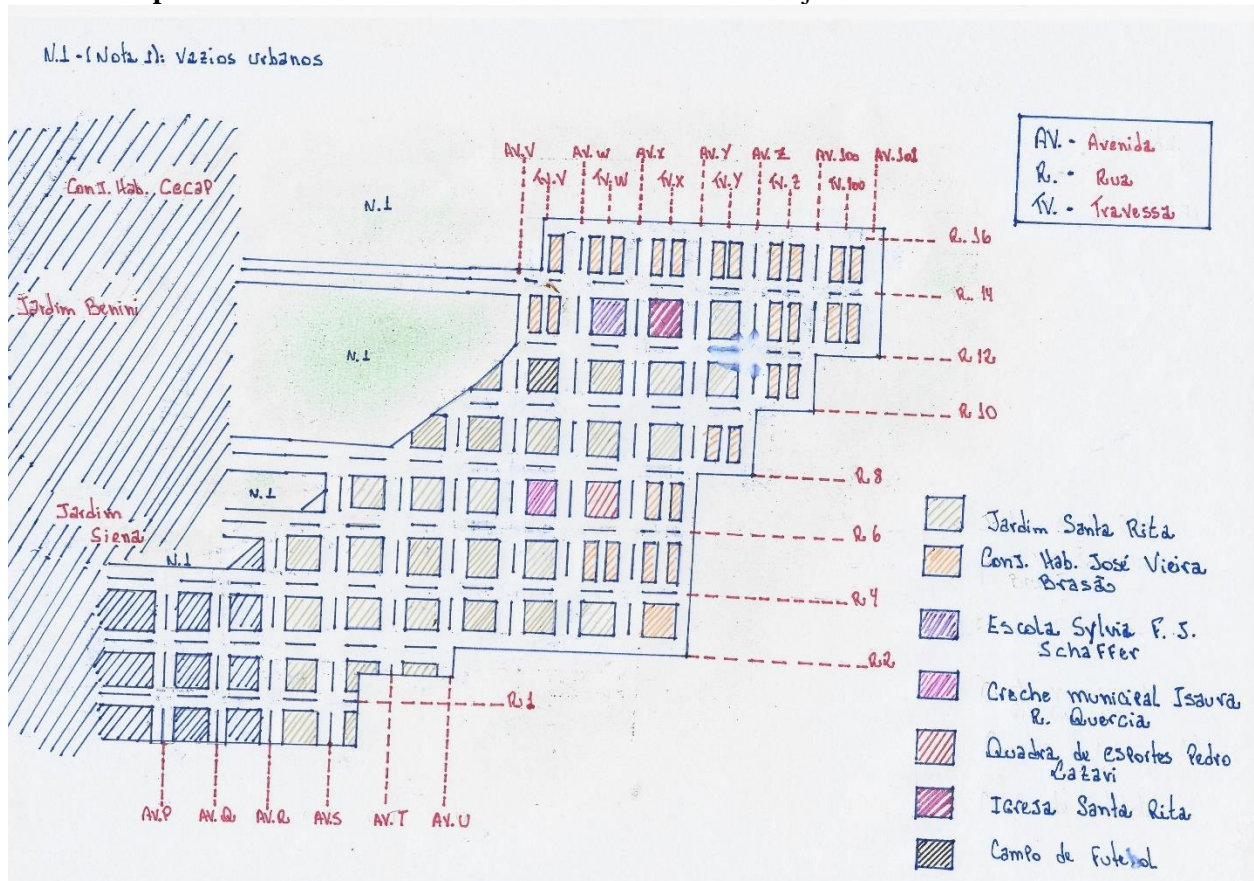 N.1 - (Nota 1): Vazios urbanos
AV. - Avenida
R. - Rua
TV. - Travessa
Conj. Hab. Cecap
Jardim Benini
Jardim
Siena
N.1
N.1
N.1
N.1
AV.V AV.W AV.X AV.Y AV.Z AV.100 AV.101
TV.V TV.W TV.X TV.Y TV.Z TV.100
R. 16
R. 14
R. 12
R. 10
R. 8
R. 6
R. 4
R. 2
R. 1
AV.P AV.Q AV.R AV.S AV.T AV.U
Jardim Santa Rita
Conj. Hab. José Vieira
Brasão
Escola Sylvia F. J.
Schaffer
Creche municipal Isaura
R. Quercia
Quadra de esportes Pedro
Igreja Santa Rita
Campo de Futebol